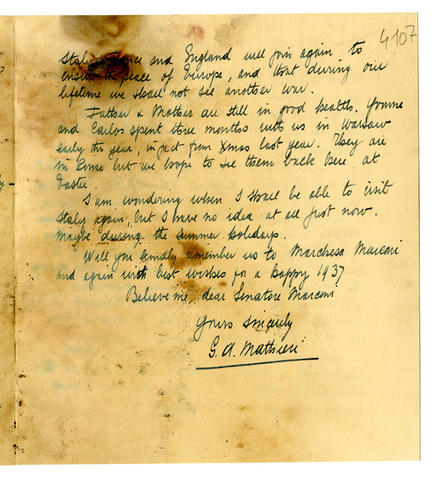 4107
Italy, France and England will join again to
ensure the peace of Europe, and that during our
lifetime we shall not see another war.
Father & Mother are still in good health. Yvonne
and Carlos spent three months with us in Warsaw
early this year, in fact from Xmas last year. They are
in but we hope to see them back here at
Easter.
I am wondering when I shall be able to visit
Italy again, but I have no idea at all just now.
Maybe during the summer holidays.
Will you kindly remember us to Marchesa Marconi
and again with best wishes for a happy 1937
Believe me, dear Senatore Marconi
Yours sincerely
G. A. Mathieu